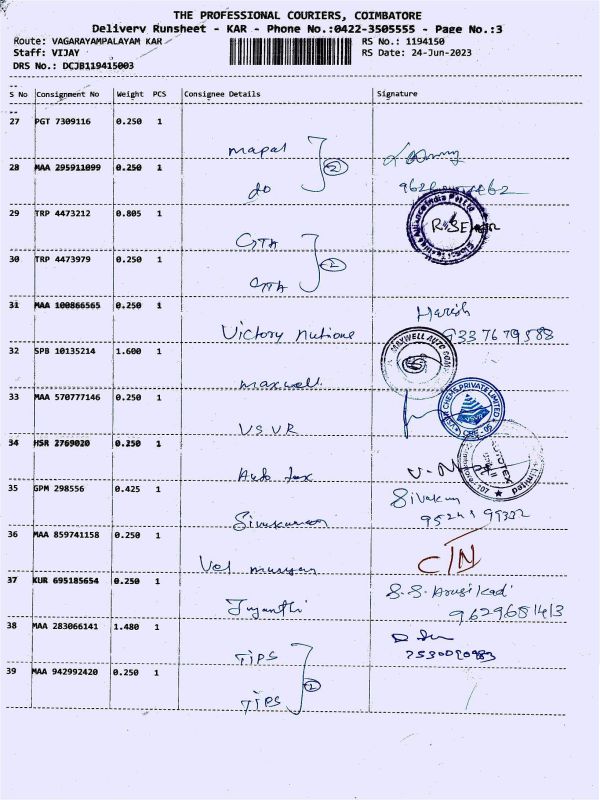 THE PROFESSIONAL COURIERS, COIMBATORE
Delivery Runsheet - KAR - Phone No.:0422-3505555 - Page No.:3
Route: VAGARAYAMPALAYAM KAR
RS No.: 1194150
Staff: VIJAY
RS Date: 24-Jun-2023
DRS No.: DCJB119415003
S No Consignment No Weight PCS Consignee Details Signature
27 PGT 7309116 0.250 1
mapal
28 MAA 295911099 0.250 1
do
2
29 TRP 4473212 0.805 1
GTA
30 TRP 4473979 0.250 1
GTA
2
31 MAA 100866565 0.250 1
Harish
Victory
9337679588
32 SPB 10135214 1.600 1
MAXWELL AUTO
maxwell
33 MAA 570777146 0.250 1
CHEMS PRIVATE LIMITED
VSVR
34 HSR 2769020 0.250 1
Auto tex
Limited
35 GPM 298556 0.425 1
Sivakumar
36 MAA 859741158 0.250 1
Vel murugan
37 KUR 695185654 0.250 1
Jayanthi
9629681413
38 MAA 283066141 1.480 1
TIPS
39 MAA 942992420 0.250 1
TIPS
2